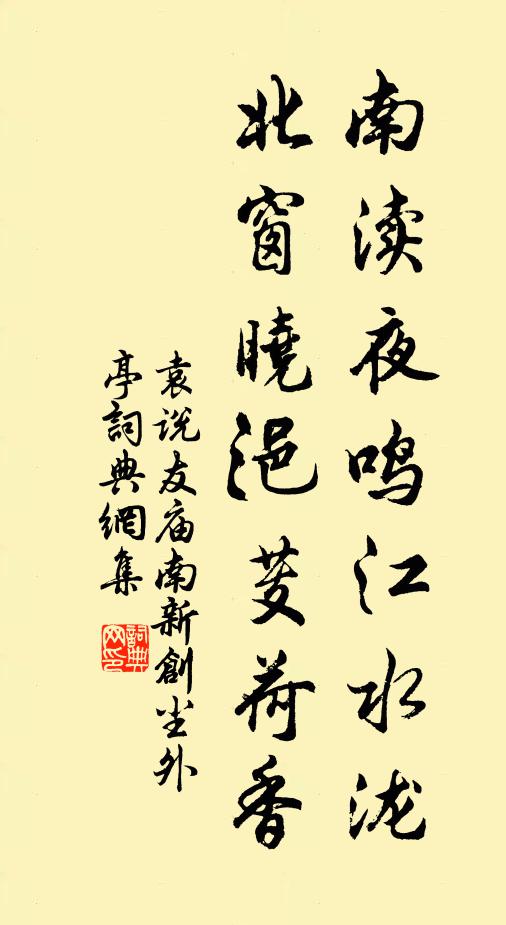 南渎夜鸣江水泷
北窗曉浥芰荷香
袁说友庙南新創尘外
亭詞典網集
詞典網印